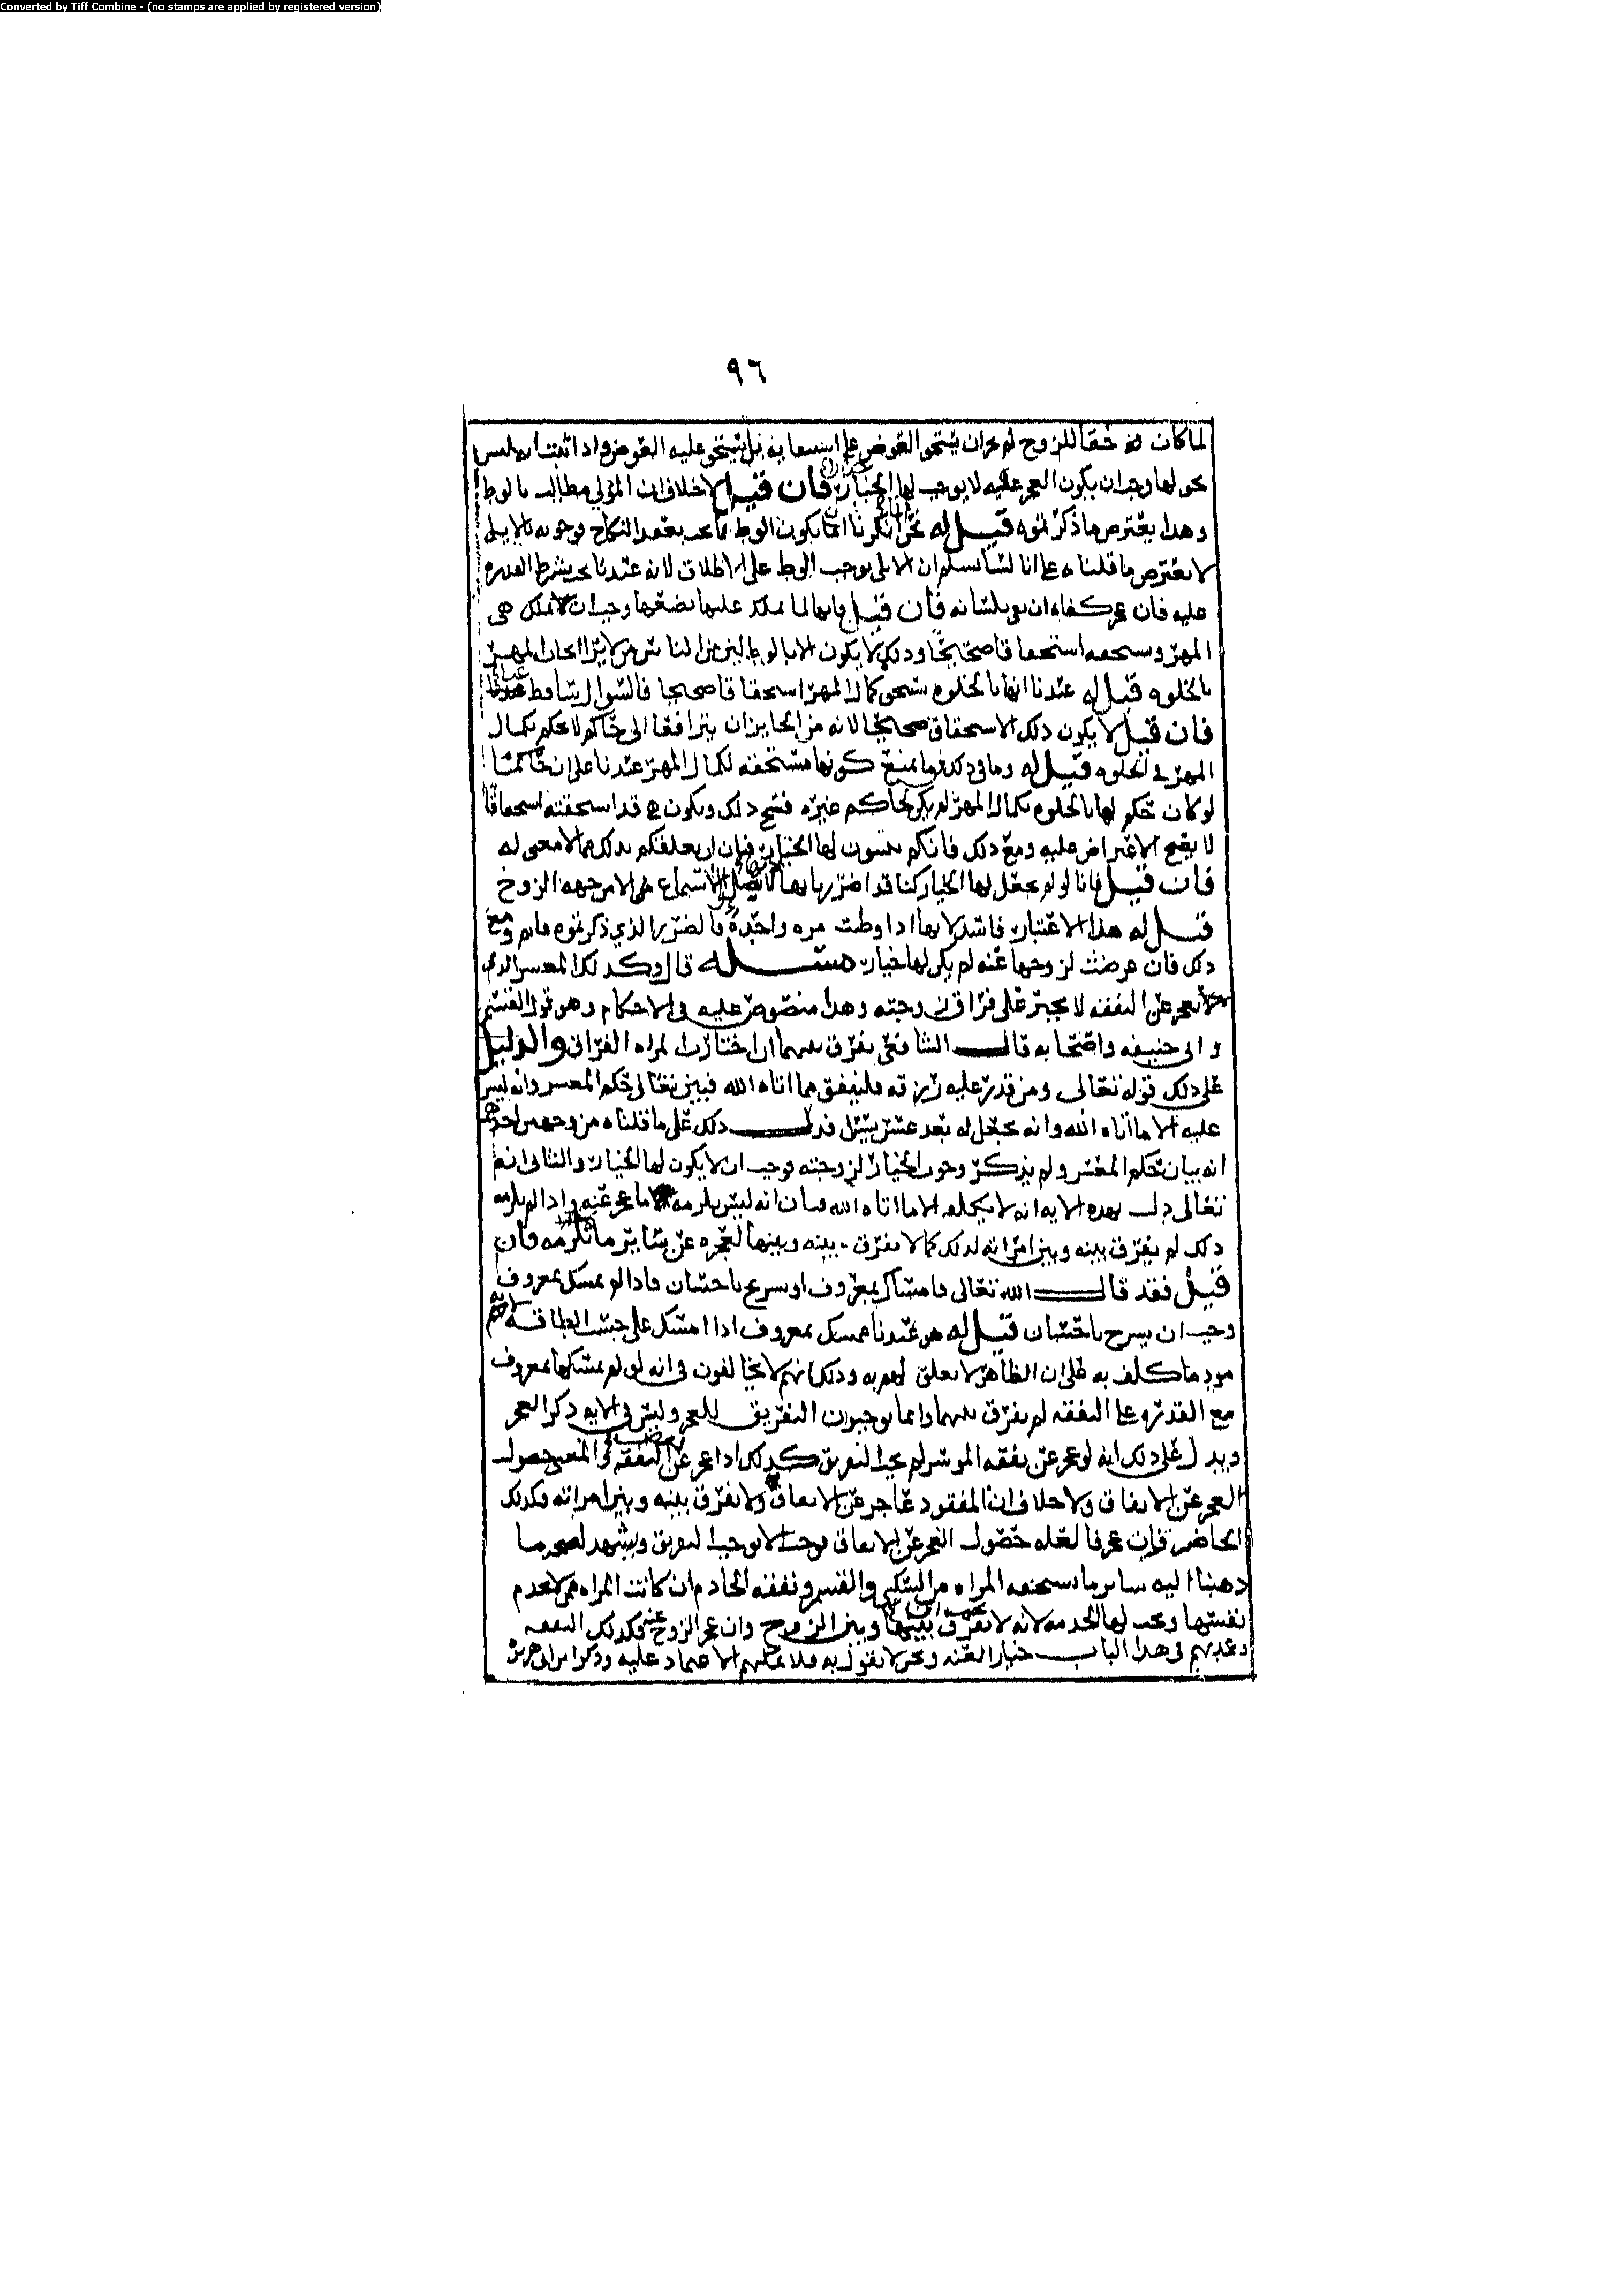 Converted by Tiff Combine - (no stamps are applied by registered version)
٩٦
لما كان حقا للزوج لم يجز ان يستحق العوض على استيفائه بل يستحق عليه العوض واذا ثبت انه ليس
بحق لها وجب ان يكون العجز عليه لا يوجب لها الخيار فان قيل لا خلاف ان المؤلي مطالب بالوط
وهذا يعترض ما ذكرتموه قيل له نحن انكرنا ان يكون الوط مما يجب بعقد النكاح ووجوبه بالايلى
لا يعترض ما قلناه على انا لسنا نسلم ان الايلى يوجب الوط على الاطلاق لانه عندنا يجب بشرط القدره
عليه فان عجز كفاه ان يفي بلسانه فان قيل فانها لما ملك عليها بضعها وجب ان تملك هي
المهر وتستحقه استحقاقا صحيحا وذلك لا يكون الا بالوط لان من الناس من لا يرا ايجاب المهر
بالخلوه قيل له عندنا انها بالخلوه تستحق كمال المهر استحقاقا صحيحا فالسوال ساقط عنا
فان قيل لا يكون ذلك الاستحقاق صحيحا لانه من الجايز ان يترافعا الى حاكم لا يحكم بكمال
المهر في الخلوه قيل له وما في ذلك مما يمنع كونها مستحقه لكمال المهر عندنا على ان حاكما
لو كان حكم لها بالخلوه بكمال المهر لم يكن لحاكم غيره فسخ ذلك وتكون قد استحقته استحقاقا
لا يصح الاعتراض عليه ومع ذلك فانكم تثبتون لها الخيار فبان ان تعلقكم بذلك مما لا معنى له
فان قيل فانا لو لم نجعل لها الخيار كنا قد اضررنا بها لانها لا تصل الى الاستمتاع الا من جهه الزوج
قيل له هذا الاعتبار فاسد لانها اذا وطئت مره واحدة فالضرر الذي ذكرتموه قايم ومع
ذلك فان عرضت لزوجها عنه لم يكن لها خيار مسئله قال وكذلك المعسر الذي
يعجز عن النفقه لا يجبر على فراق زوجته وهذا منصوص عليه في الاحكام وهو قول القسم
وابي حنيفه واصحابه قال الشافعي يفرق بينهما ان اختارت المراه الفراق والدليل
على ذلك قوله تعالى ومن قدر عليه رزقه فلينفق مما اتاه الله فبين تعالى حكم المعسر وانه ليس
عليه الا ما اتاه الله وانه يجعل له بعد عسر يسرا فدل ذلك على ما قلناه من وجهين احدهما
انه بيان حكم المعسر ولم يذكر وجوب الخيار لزوجته فوجب ان لا يكون لها الخيار والثاني انه
تعالى دل بهذه الايه انه لا يكلف الا ما اتاه الله فبان انه ليس يلزمه ما عجز عنه واذا لم يلزمه
ذلك لم يفرق بينه وبين امراته لذلك كما لا يفرق بينه وبينها لعجزه عن ساير ما لا يلزمه فان
قيل فقد قال الله تعالى فامساك بمعروف او تسريح باحسان فاذا لم يمسك بمعروف
وجب ان يسرح باحسان قيل له هو عندنا ممسك بمعروف اذا امسك على حسب الطاقه
مودٍ ما كلف به على ان الظاهر لا تعلق لهم به وذلك انهم لا يخالفون في انه لو لم يمسكها بمعروف
مع القدره على النفقه لم يفرق بينهما وانما يوجبون التفريق للعجز وليس في الايه ذكر العجز
ويدل على ذلك انه لو عجز عن نفقه الموسر لم يجب التفريق كذلك اذا عجز عن النفقه والمعنى حصول
العجز عن الانفاق ولا خلاف ان المفقود عاجز عن الانفاق ولا يفرق بينه وبين امراته فكذلك
الحاضر فبان بما عرفنا لعله حصول العجز عن الانفاق يوجب الا يوجب التفريق ويشهد لصحه ما
ذهبنا اليه ساير ما تستحقه المراه من السكنى والقسم ونفقه الخادم ان كانت المراه ممن لا تخدم
نفسها ويجب لها الخدمه لانه لا يفرق بينها وبين الزوج وان عجز الزوج عنه فكذلك النفقه
وعمدتهم في هذا الباب خيار العنه ونحن لا نقول به فلا يمكنهم الاعتماد عليه وذكر ابن ابي هريره